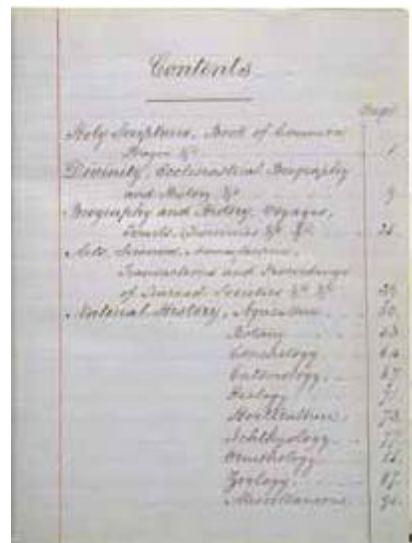 Contents
Page
Holy Scriptures, Book of Common
Prayer &c 1
Divinity, Ecclesiastical Biography
and History &c 9
Biography and History, Voyages,
Travels, &c &c
Arts, Sciences, Manufactures,
Transactions and Proceedings
of Learned Societies &c &c
Natural History, Agriculture 60
Botany 63
Conchology 64
Entomology 67
Geology 71
Horticulture
Ichthyology 77
Ornithology
Zoology 87
Miscellaneous